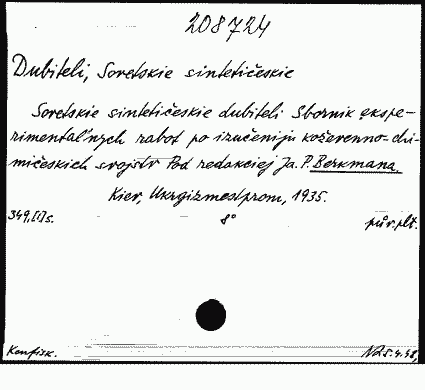 208724
Dubiteli, Sovetskie sintetičeskie
Sovetskie sintetičeskie dubiteli Sbornik ekspe-
rimental'nych rabot po izučeniju koževenno-chi-
mičeskich svojstv Pod redakciej Ja. P. Berkmana.
Kiev, Ukrgizmestprom, 1935.
349,[1]s. 8° pův. plt.
Konfisk. 5.4.48,